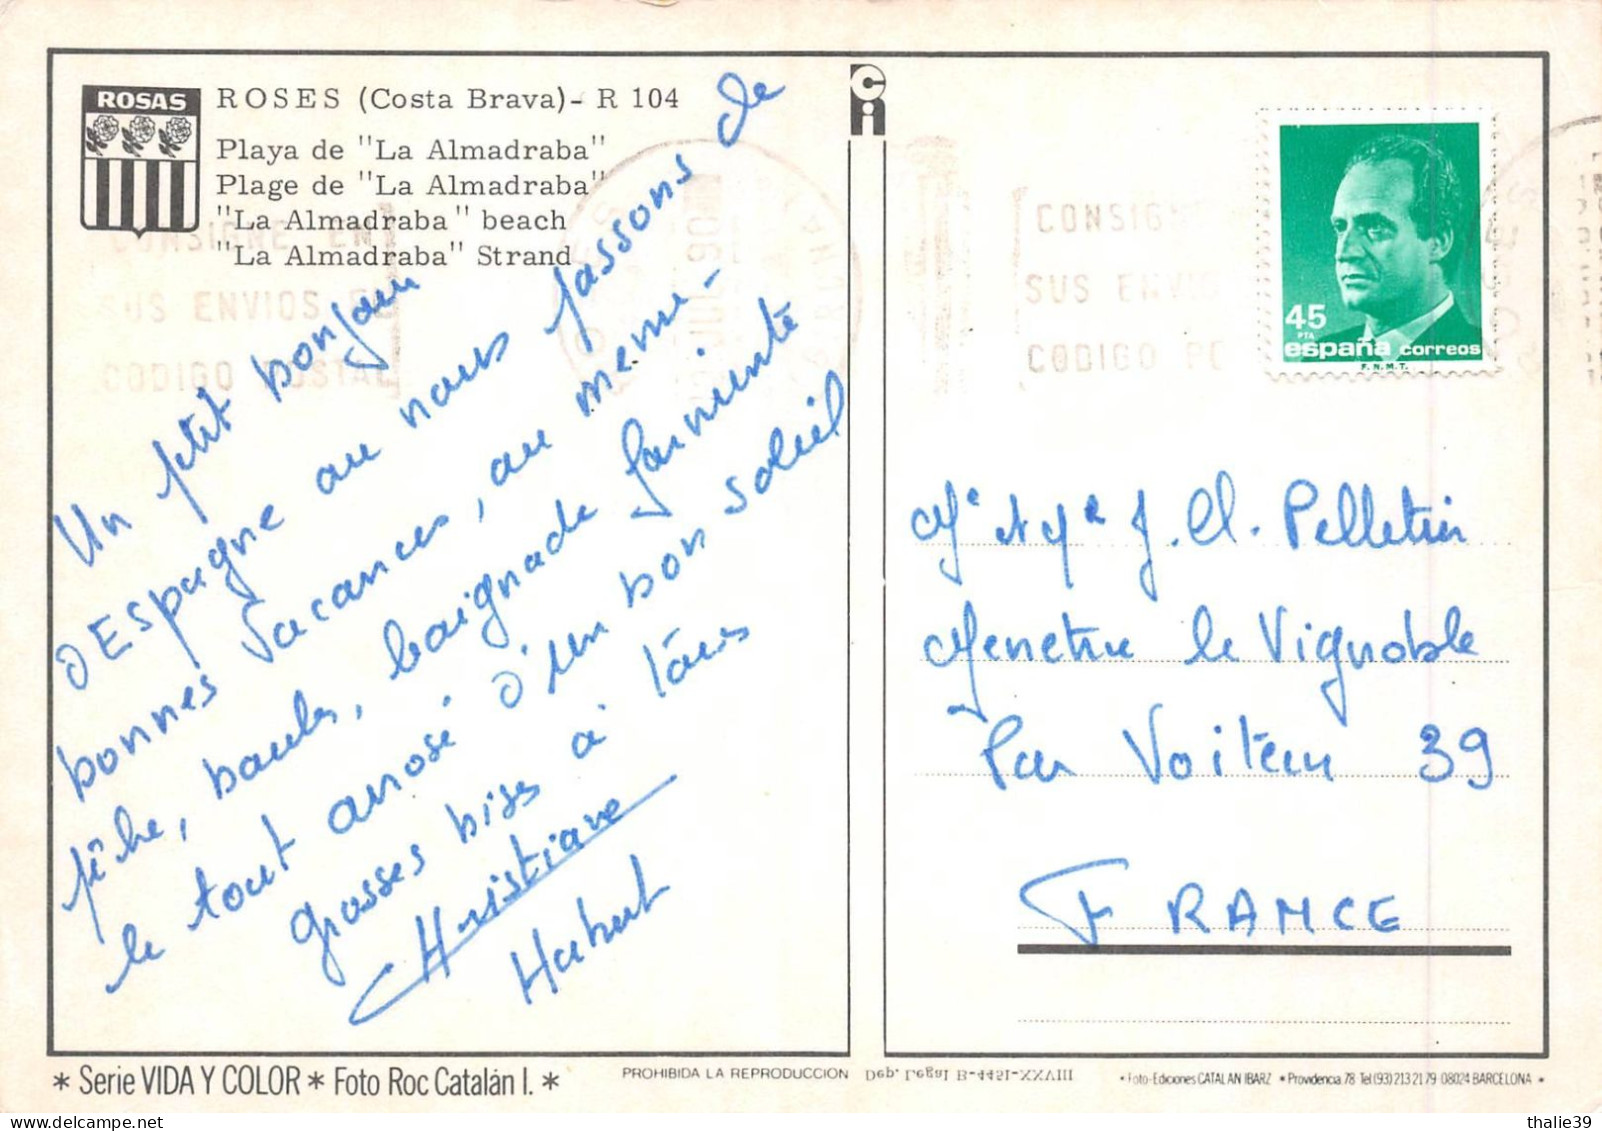 ROSAS
ROSES (Costa Brava)- R 104
Playa de "La Almadraba"
Plage de "La Almadraba"
"La Almadraba" beach
"La Almadraba" Strand
CONSIGNE EN
SUS ENVIOS EL
CODIGO POSTAL
Un ptit bonjour
d'Espagne ou nous passons de
bonnes vacances, au menu -
pêche, boules, baignade farniente
le tout arrosé d'un bon soleil
grosses bises à tous
Christiane
Hubert
CONSIGNE
SUS ENVIO
CODIGO PO
45
PTA
españa correos
F.N.M.T.
Mr et Me J. Cl. Pelletier
Menetru le Vignoble
Par Voiteur 39
FRANCE
* Serie VIDA Y COLOR * Foto Roc Catalán I. *
PROHIBIDA LA REPRODUCCION
Dep. Legal B-4451-XXVIII
* Foto-Ediciones CATALAN IBARZ * Providencia, 78 Tel (93) 213 21 79 08024 BARCELONA *
thalie39